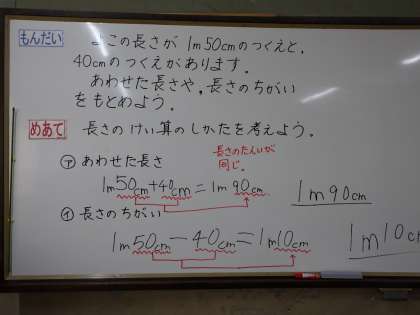 もんだい
よこの長さが 1m50cmのつくえと、
40cmのつくえがあります。
あわせた長さや、長さのちがい
をもとめよう。
めあて 長さのけい算のしかたを考えよう。
㋐ あわせた長さ
長さのたんいが
同じ。
1m50cm+40cm=1m90cm
1m90cm
㋑ 長さのちがい
1m50cm-40cm=1m10cm
1m10c